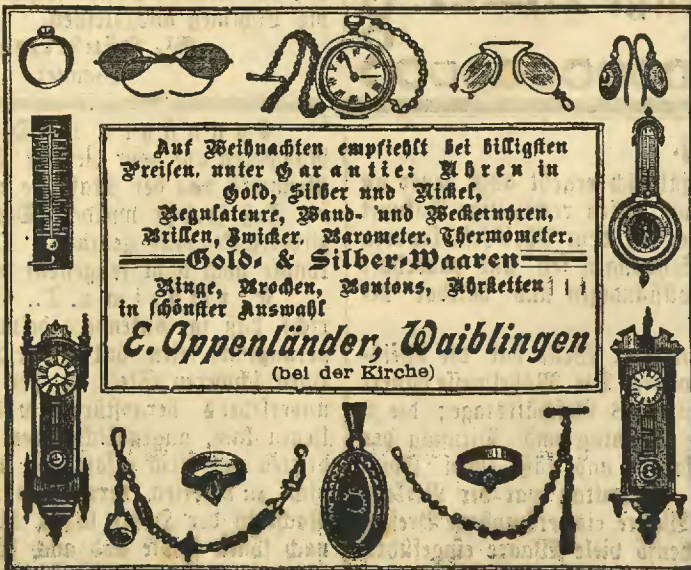 Auf Weihnachten empfiehlt bei billigsten
Preisen, unter Garantie: Uhren in
Gold, Silber und Nickel,
Regulateure, Wand- und Weckeruhren,
Brillen, Zwicker, Barometer, Thermometer.
Gold- & Silber-Waaren
Ringe, Brochen, Boutons, Uhrketten
in schönster Auswahl
E. Oppenländer, Waiblingen
(bei der Kirche)